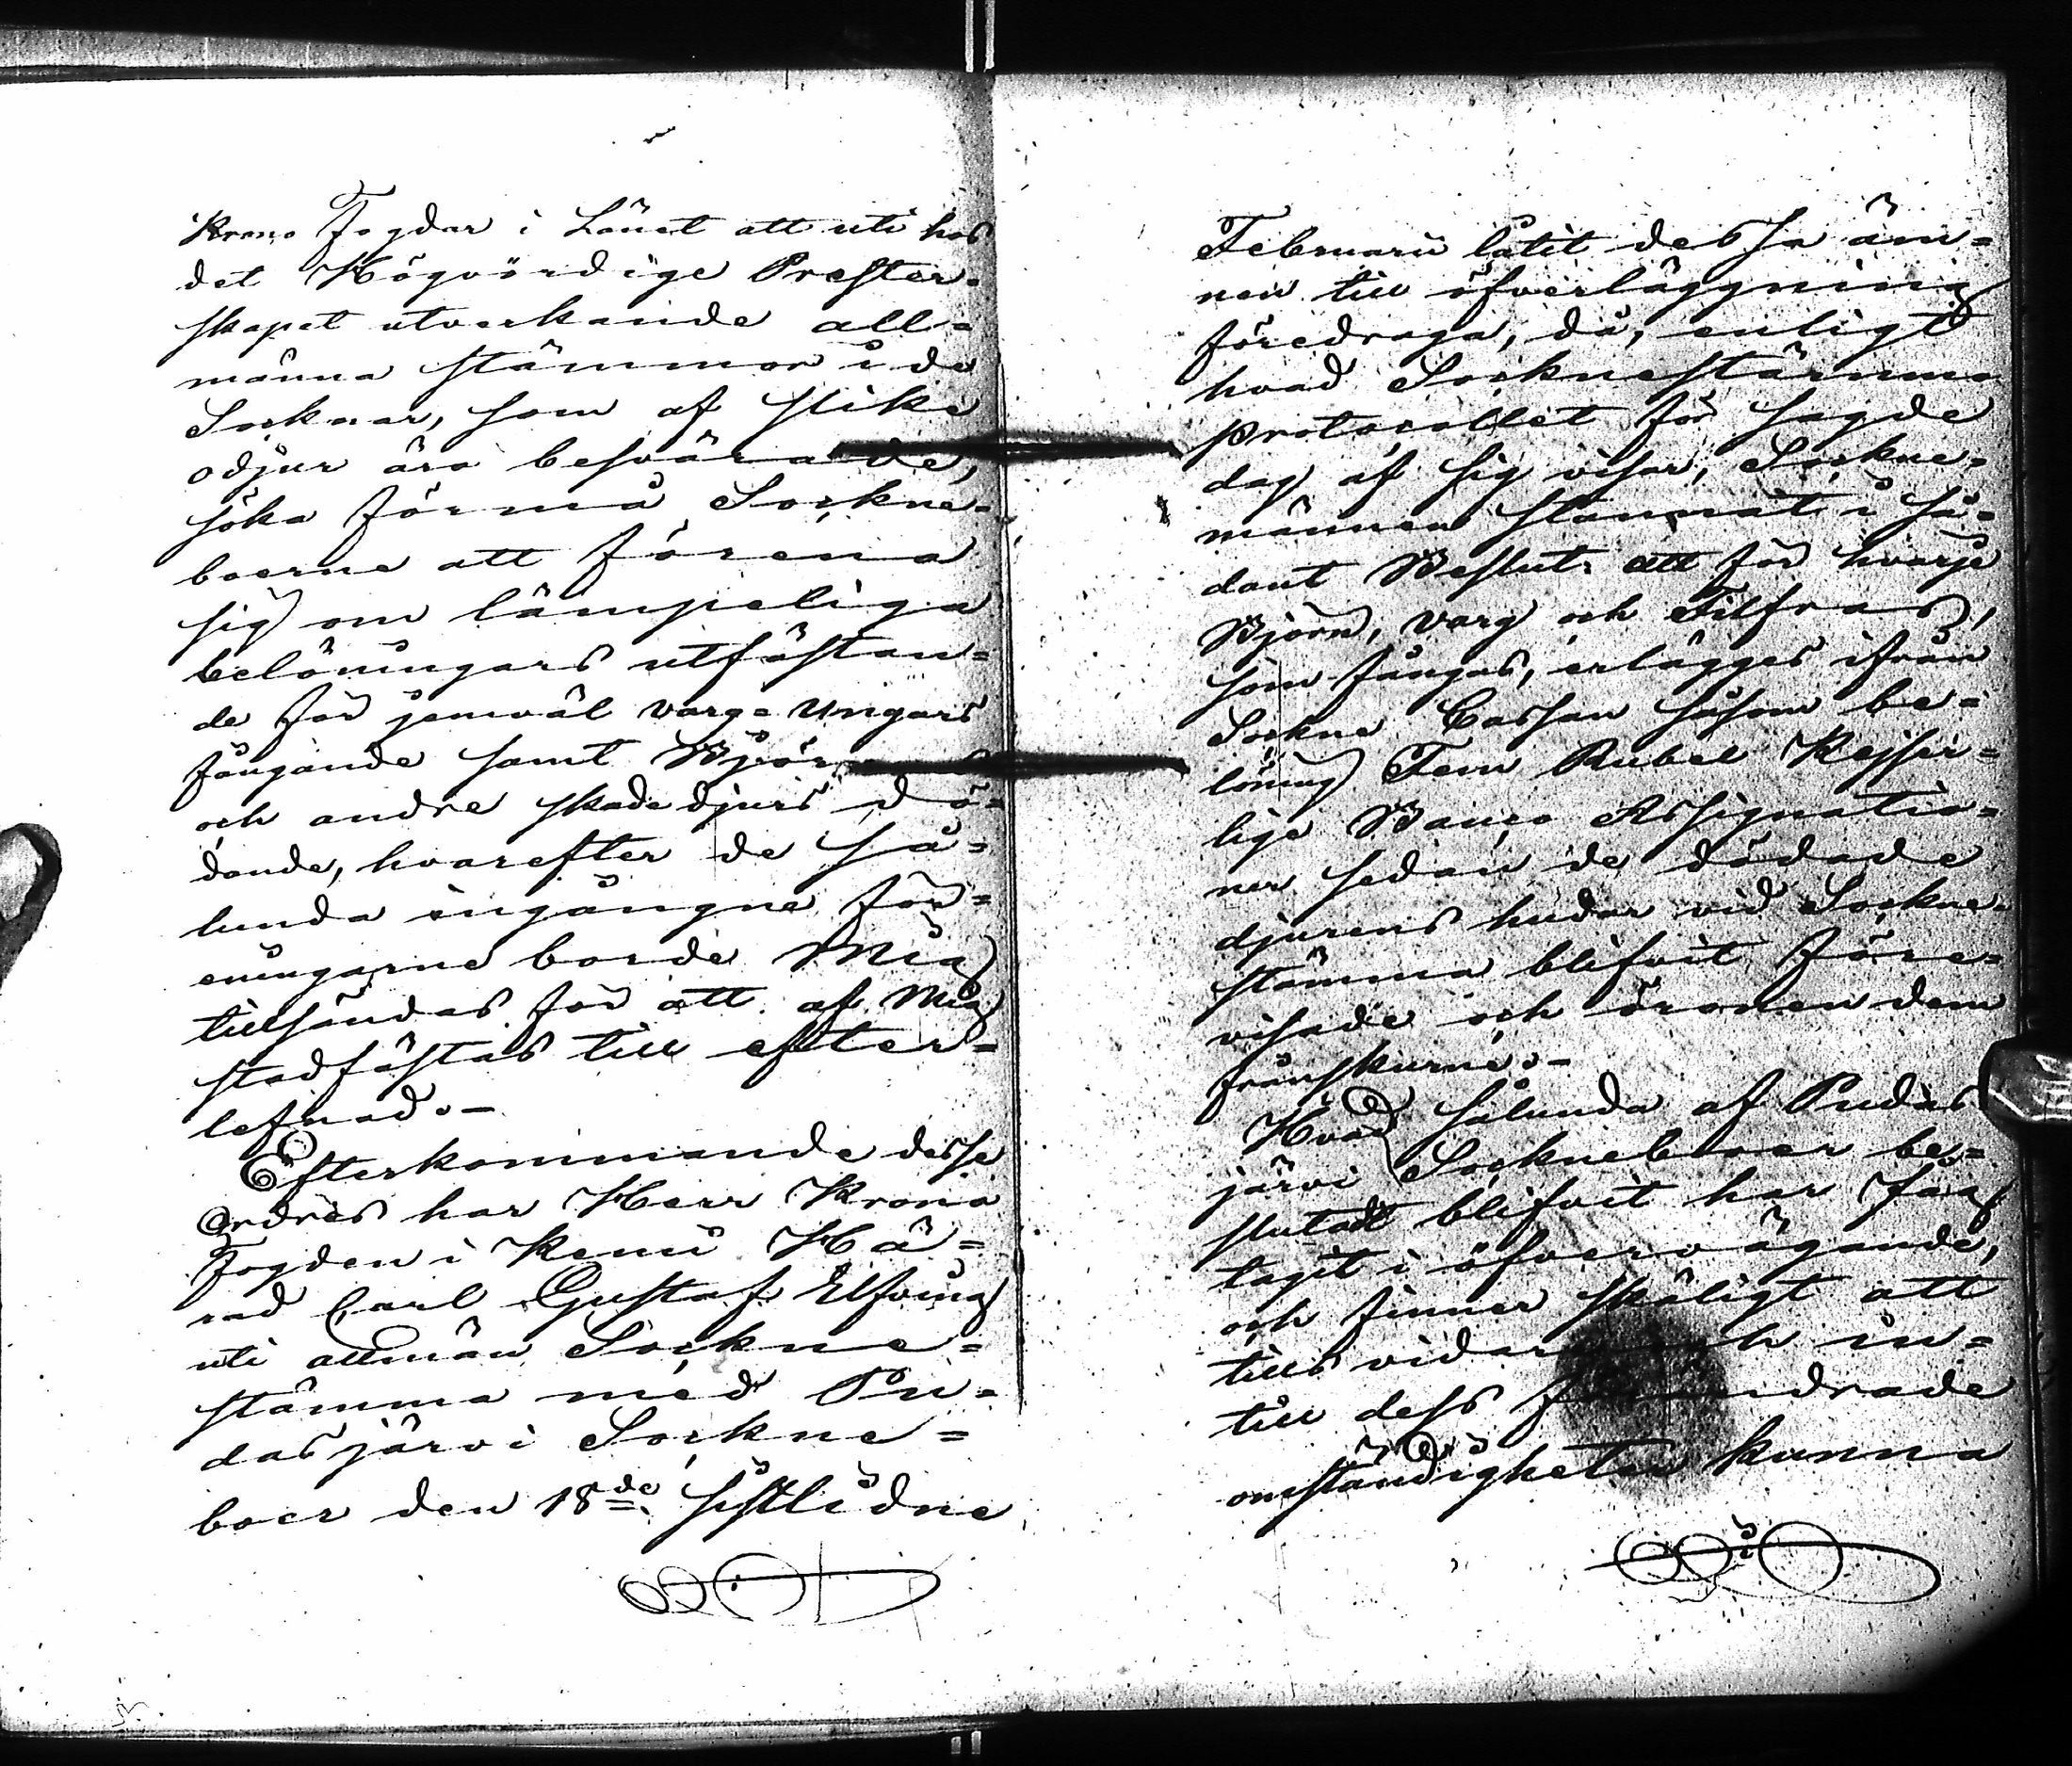 Krono Fogdar i Länet att uti hos
det Högvördige Prester-
skapet utverkande all=
männa stämmor i de
Soknar, som af slike
odjur äro besvärade,
söka förmå Sockne-
boerne att förena
sig om lämpeliga
belöningars utfästan=
de för jemväl varg=ungars
fångande samt Björnars
och andre skadedjurs dö=
dande, hvarefter de så=
lunda ingångne för=
eningarne borde Mig
tillsändas för att af Mig
stadfästas till efter=
lefnad.-
Efterkommande desse
Ordres har Herr Krono
Fogden i Kemi Hä=
rad Carl Gustaf Elfving
uti allmän Sockne=
stämma med Pu=
dasjärvi Sockne=
boer den 18de sistlidne
Februarii låtit dessa äm=
nen till öfverläggning
föredraga, då, enligt
hvad Socknestämmo
protocollet för sagde
dag af sig visar, Sockne=
männen stannat i så=
dant Beslut: att för hvarje
Björn, varg och Filfras,
som fångas, erlägges ifrån
Sockne Cassan såsom be=
löning Fem Rubel Kejser=
lige Banco Assignatio=
ner sedan de dödade
djurens hudar vid Sockne=
stämma blifvit före=
visade och öronen dem
frånskurne.-
Hvad sålunda af Pudas
järvi Sockneboer be=
slutadt blifvit har Jag
tagit i öfvervägande,
och finner skäligt att
tills vidare och in=
till dess förändrade
omständigheter kunna